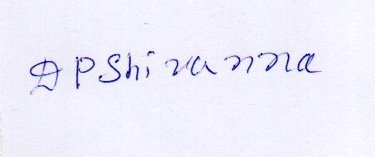 D P Shivanna